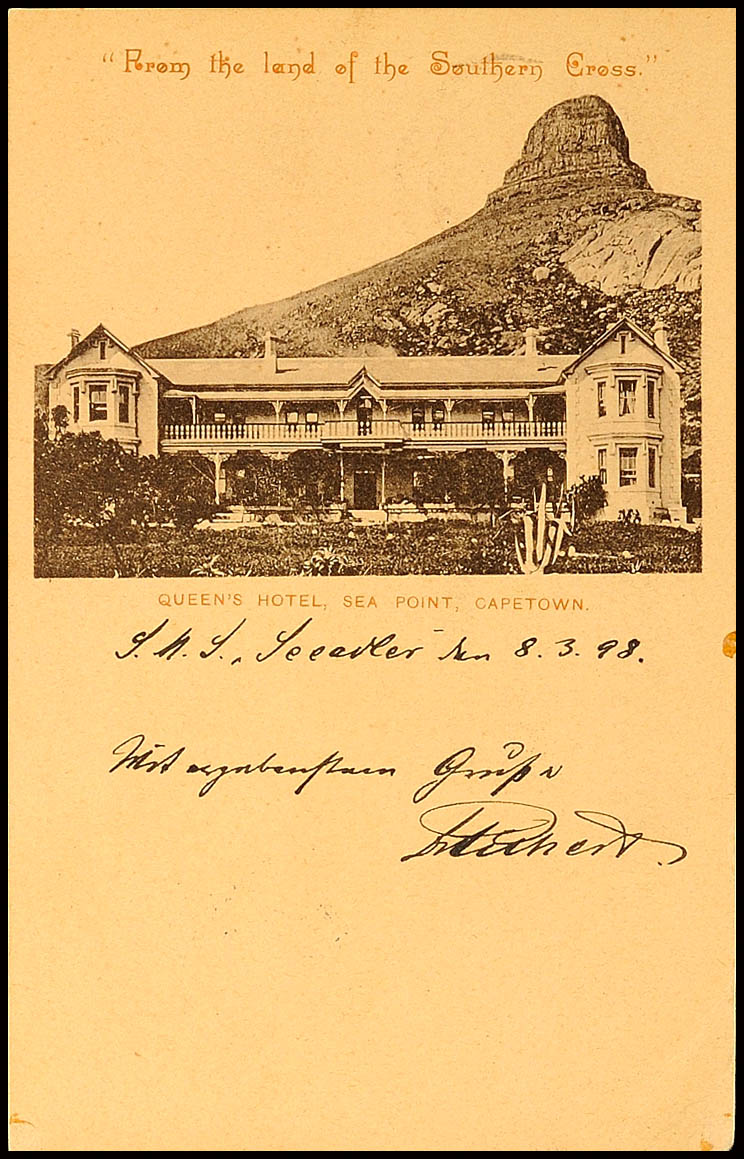 "From the land of the Southern Cross."
QUEEN'S HOTEL, SEA POINT, CAPETOWN.
S. M. S. „Seeadler" den 8. 3. 98.
Mit ergebenstem Gruße